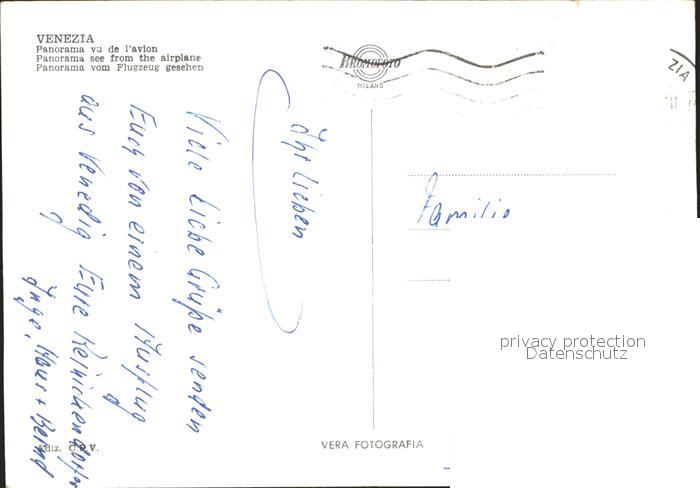 VENEZIA
Panorama vu de l'avion
Panorama see from the airplane
Panorama vom Flugzeug gesehen
BROMOFOTO
MILANO
ZIA
Ihr Lieben
Viele liebe Grüße senden
Euch von einem Ausflug
aus Venedig Eure Reinickendorfer
Inge, Klaus + Bernd
Familie
privacy protection
Datenschutz
VERA FOTOGRAFIA
Ediz. V.